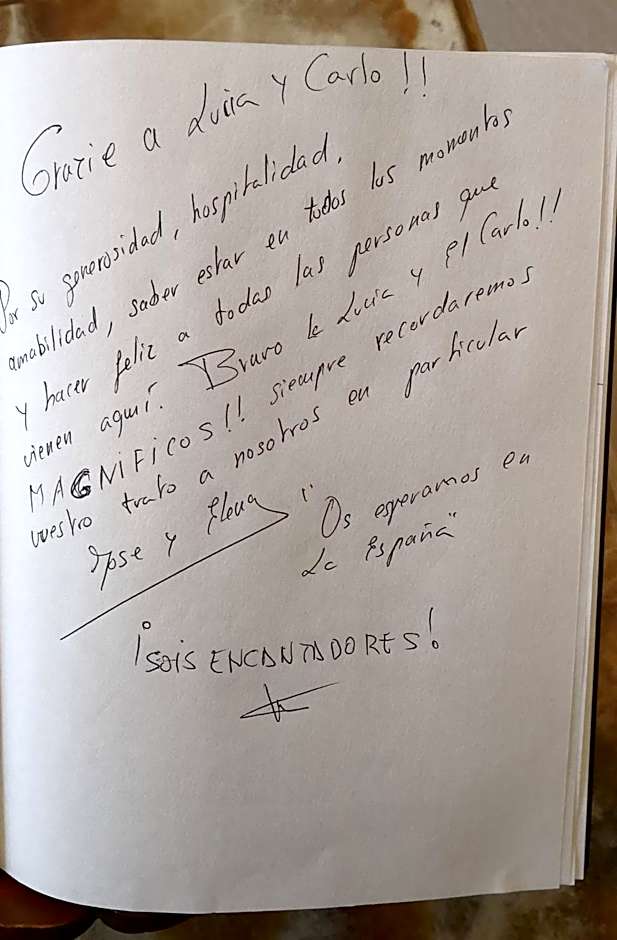 Grazie a Lucia y Carlo!!
Por su generosidad, hospitalidad,
amabilidad, saber estar en todos los momentos
y hacer feliz a todas las personas que
vienen aquí. Bravo le Lucia y el Carlo!!
MAGNÍFICOS!! siempre recordaremos
vuestro trato a nosotros en particular
Jose y Elena "Os esperamos en
La España"
¡SOIS ENCANTADORES!